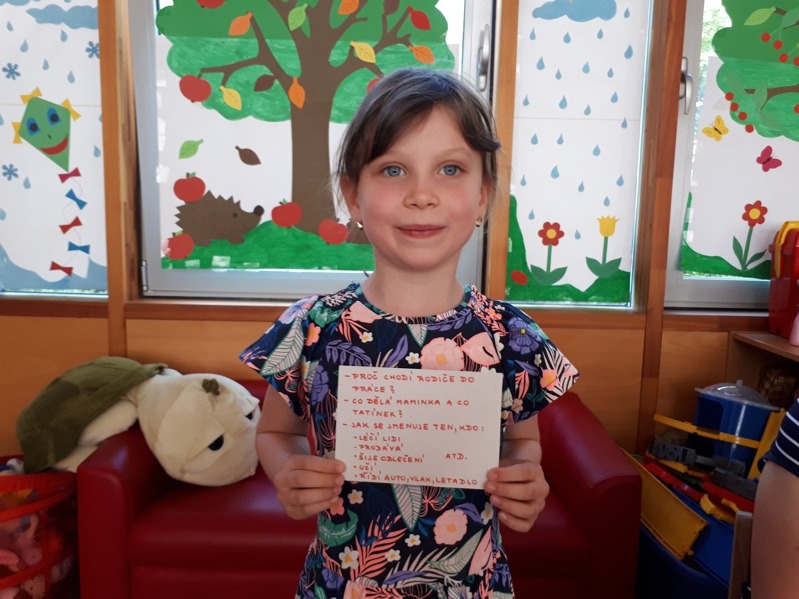 - PROČ CHODÍ RODIČE DO
PRÁCE?
- CO DĚLÁ MAMINKA A CO
TATÍNEK?
- JAK SE JMENUJE TEN, KDO:
- LÉČÍ LIDI
- PRODÁVÁ
- ŠIJE OBLEČENÍ ATD.
- UČÍ
- ŘÍDÍ AUTO, VLAK, LETADLO